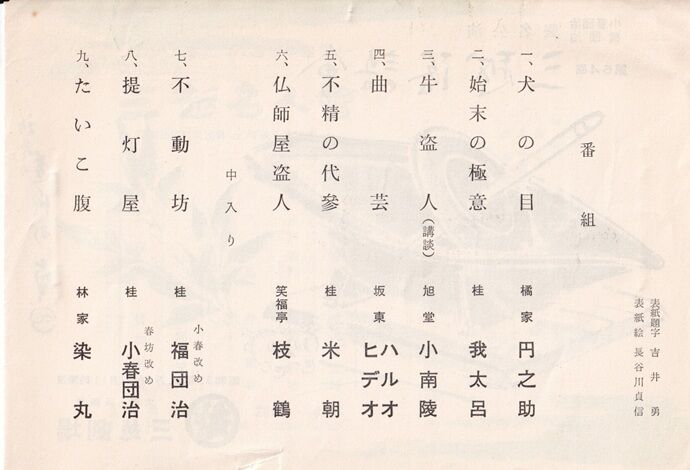 表紙題字 吉井勇
表紙絵 長谷川貞信
番組
一、犬の目 橘家 円之助
二、始末の極意 桂 我太呂
三、牛盗人(講談) 旭堂 小南陵
四、曲芸 坂東 ハルオ ヒデオ
五、不精の代參 桂 米朝
六、仏師屋盗人 笑福亭 枝鶴
中入り
七、不動坊 桂 小春改め 福団治
八、提灯屋 桂 春坊改め 小春団治
九、たいこ腹 林家 染丸